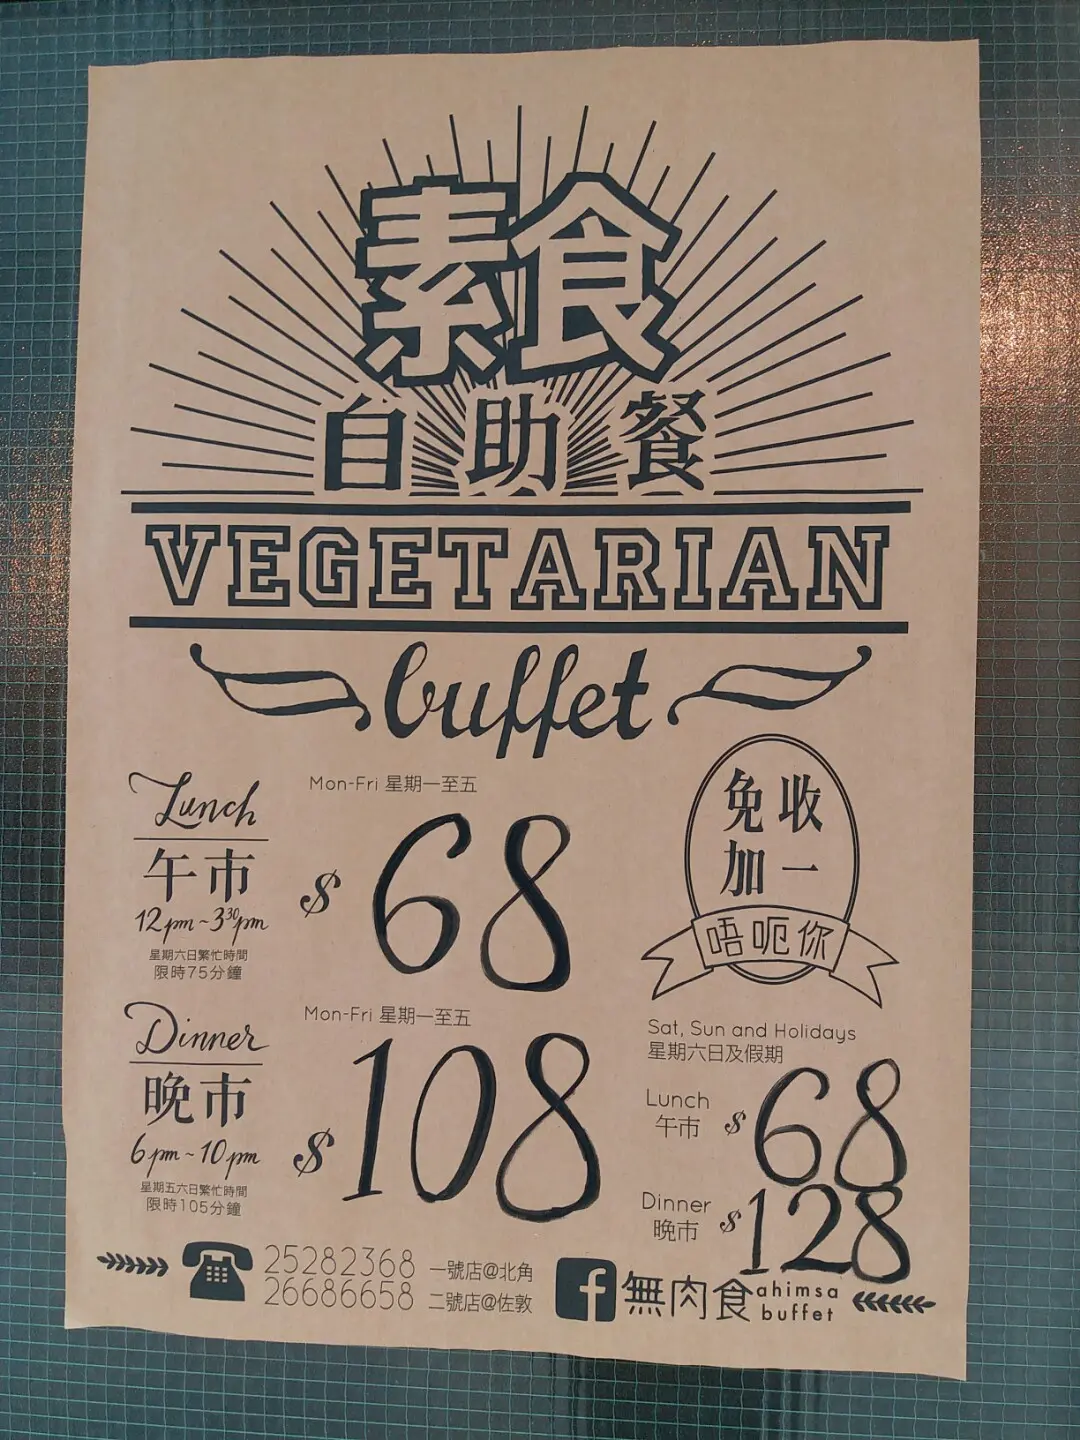 素食
自助餐
VEGETARIAN
buffet
Lunch
午市
12pm~3³⁰pm
星期六日繁忙時間
限時75分鐘
Mon-Fri 星期一至五
$68
免收
加一
唔呃你
Dinner
晚市
6pm~10pm
星期五六日繁忙時間
限時105分鐘
Mon-Fri 星期一至五
$108
Sat, Sun and Holidays
星期六日及假期
Lunch
午市
$68
Dinner
晚市
$128
25282368 一號店@北角
26686658 二號店@佐敦
f 無肉食 ahimsa
buffet